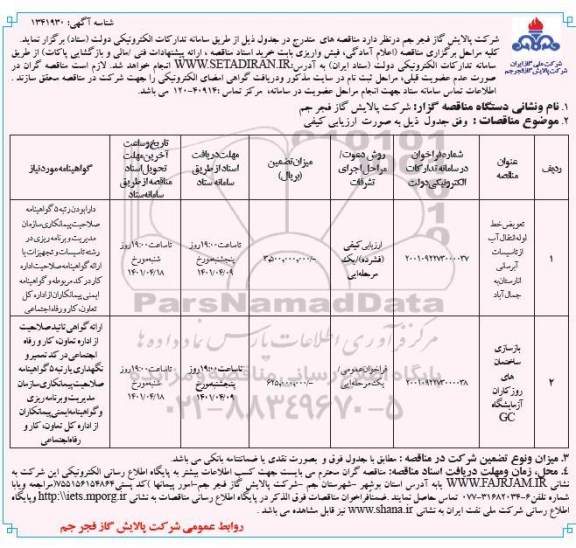 شناسه آگهی: ۱۳۴۱۹۳۰
شرکت ملی گاز ایران
شرکت پالایش گاز فجر جم
شرکت پالایش گاز فجر جم درنظر دارد مناقصه های مندرج در جدول ذیل از طریق سامانه تدارکات الکترونیکی دولت (ستاد) برگزار نماید.
کلیه مراحل برگزاری مناقصه (اعلام آمادگی، فیش واریزی بابت خرید اسناد مناقصه ، ارائه پیشنهادات فنی /مالی و بازگشایی پاکات) از طریق
سامانه تدارکات الکترونیکی دولت (ستاد ایران) به آدرس:WWW.SETADIRAN.IR انجام خواهد شد. لازم است مناقصه گران در
صورت عدم عضویت قبلی، مراحل ثبت نام در سایت مذکور ودریافت گواهی امضای الکترونیکی را جهت شرکت در مناقصه محقق سازند .
اطلاعات تماس سامانه ستاد جهت انجام مراحل عضویت در سامانه، مرکز تماس :۴۰۹۱۴-۱۲۰ می باشد.
۱. نام ونشانی دستگاه مناقصه گزار: شرکت پالایش گاز فجر جم
۲. موضوع مناقصات : وفق جدول ذیل به صورت ارزیابی کیفی
ردیف
عنوان مناقصه
شماره فراخوان در سامانه تدارکات الکترونیکی دولت
روش دعوت/ مراحل اجرای تشرفات
میزان تضمین (بریال)
مهلت دریافت اسناد از طریق سامانه ستاد
تاریخ و ساعت آخرین مهلت تحویل اسناد مناقصه از طریق سامانه ستاد
گواهینامه مورد نیاز
۱
تعویض خط لوله انتقال آب از تاسیسات آبرسانی انارستان به جمال آباد
۲۰۰۱۰۹۲۲۷۳۰۰۰۰۳۷
ارزیابی کیفی (فشرده)/یک مرحله ایی
۳,۵۰۰,۰۰۰,۰۰۰/-
تا ساعت ۱۹:۰۰ روز پنجشنبه مورخ ۱۴۰۱/۰۴/۰۹
تا ساعت ۱۹:۰۰ روز شنبه مورخ ۱۴۰۱/۰۴/۱۸
دارا بودن رتبه ۵ گواهینامه صلاحیت پیمانکاری سازمان مدیریت و برنامه ریزی در رشته تاسیسات و تجهیزات یا ارائه گواهینامه صلاحیت اداره کار در کد مربوطه و گواهینامه ایمنی پیمانکاران از اداره کل تعاون، کار و رفاه اجتماعی
۲
بازسازی ساختمان های روزکاران آزمایشگاه GC
۲۰۰۱۰۹۲۲۷۳۰۰۰۰۳۸
فراخوان عمومی/ یک مرحله ایی
۶۲۵,۰۰۰,۰۰۰/-
تا ساعت ۱۹:۰۰ روز پنجشنبه مورخ ۱۴۰۱/۰۴/۰۹
تا ساعت ۱۹:۰۰ روز شنبه مورخ ۱۴۰۱/۰۴/۱۸
ارائه گواهی تائید صلاحیت از اداره تعاون، کار و رفاه اجتماعی در کد تعمیر و نگهداری یا رتبه ۵ گواهینامه صلاحیت پیمانکاری سازمان مدیریت و برنامه ریزی و گواهینامه ایمنی پیمانکاران از اداره کل تعاون کار و رفاه اجتماعی
ParsNamadData
مرکز فرآوری اطلاعات پارس نماد داده ها
پایگاه اطلاع رسانی مناقصه و مزایده
۰۲۱-۸۸۳۴۹۶۷۰-۵
۳. میزان ونوع تضمین شرکت در مناقصه : مطابق با جدول فوق و بصورت نقدی یا ضمانتنامه بانکی می باشد.
۴. محل، زمان ومهلت دریافت اسناد مناقصه: مناقصه گران محترم می بایست جهت کسب اطلاعات بیشتر به پایگاه اطلاع رسانی الکترونیکی این شرکت به
نشانی WWW.FAJRJAM.IR یابه آدرس استان بوشهر -شهرستان جم -شرکت پالایش گاز فجر جم-امور پیمانها (کد پستی۷۵۵۱۵۶۱۵۴۸۶۴)مراجعه ویابا
شماره تلفن۶-۳۱۶۸۲۰۳۴-۰۷۷ تماس حاصل نمایند .ضمنافراخوان مناقصات فوق الذکر در پایگاه اطلاع رسانی مناقصات به نشانی http:\\iets.mporg.ir وپایگاه
اطلاع رسانی شرکت ملی نفت ایران به نشانی www.shana.ir نیز قابل مشاهده می باشد .
روابط عمومی شرکت پالایش گاز فجر جم